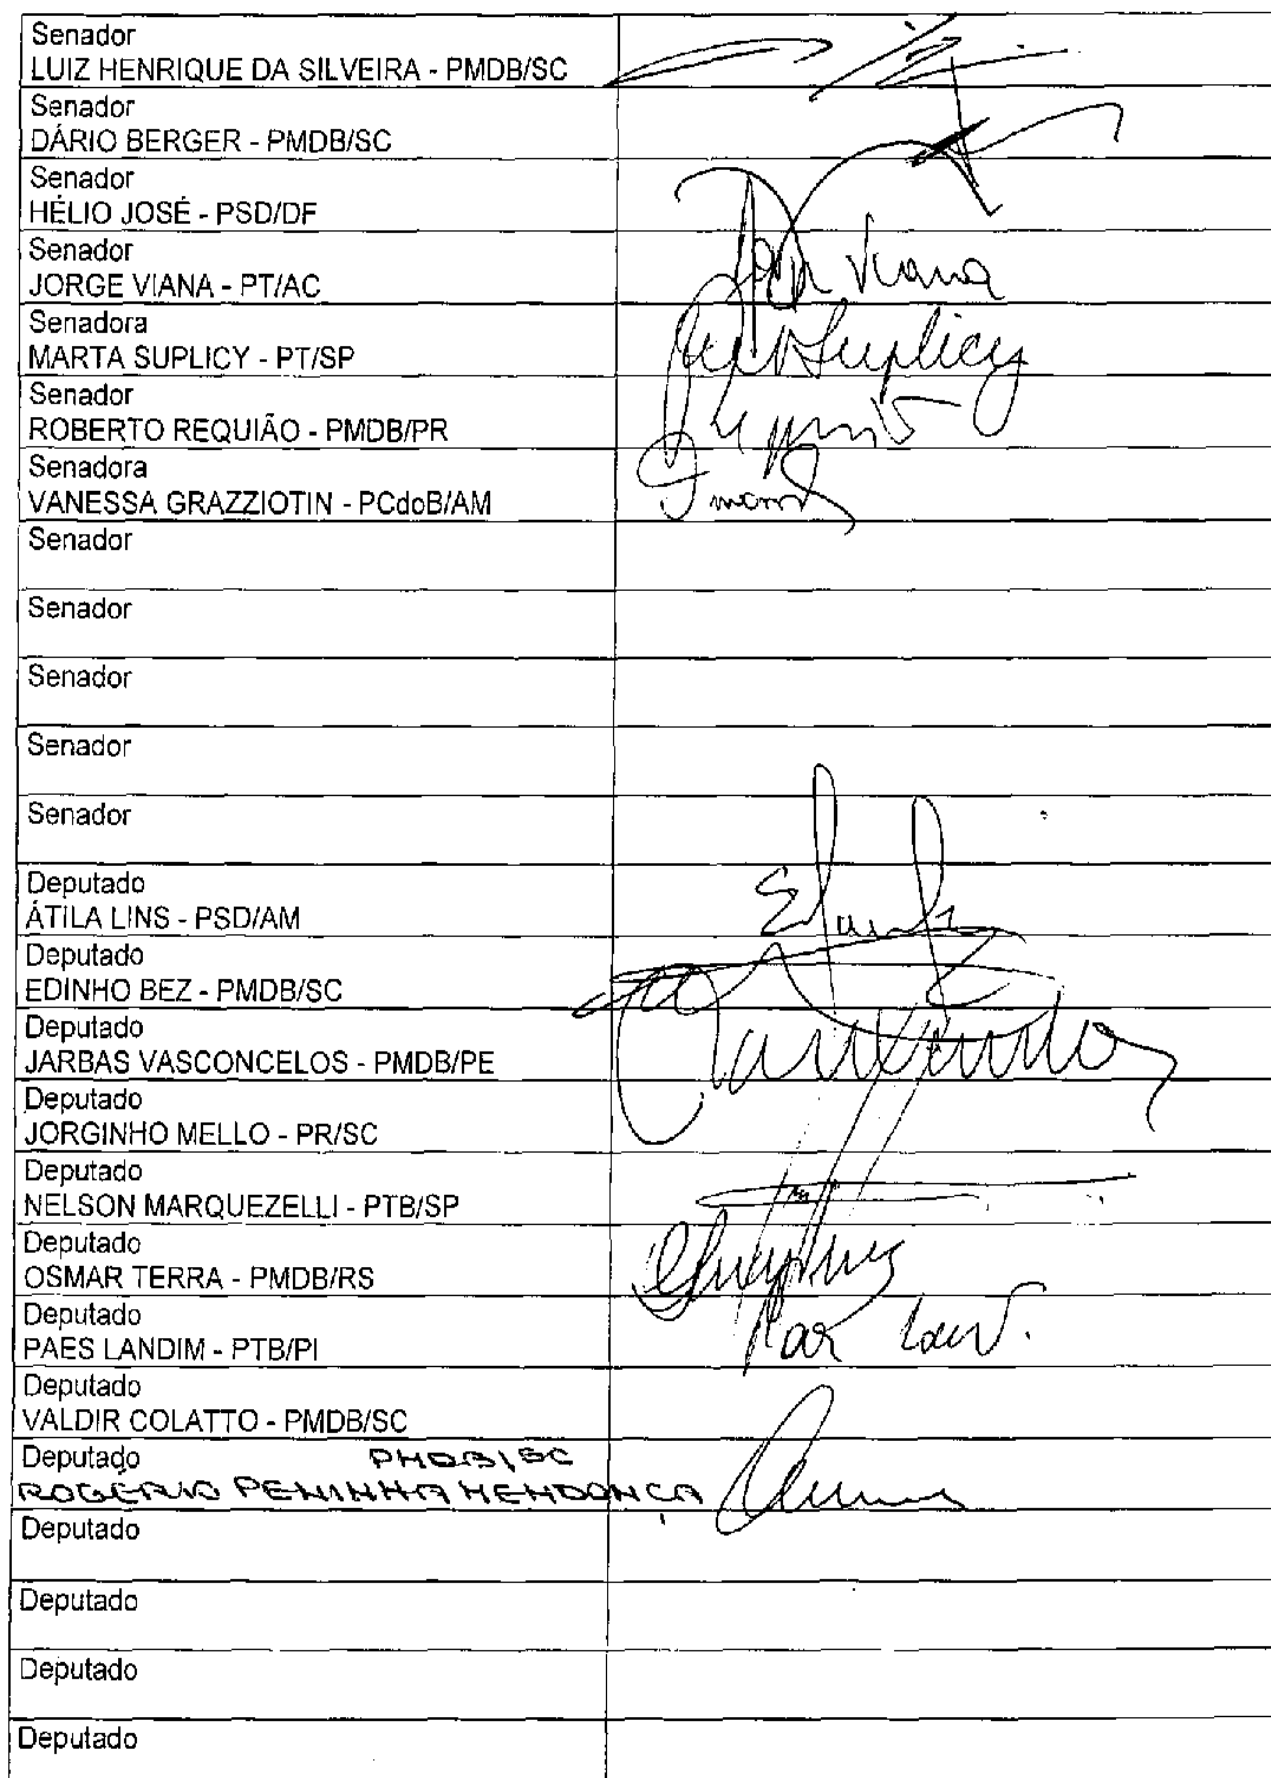 Senador
LUIZ HENRIQUE DA SILVEIRA - PMDB/SC
Senador
DÁRIO BERGER - PMDB/SC
Senador
HÉLIO JOSÉ - PSD/DF
Senador
JORGE VIANA - PT/AC
Viana
Senadora
MARTA SUPLICY - PT/SP
Suplicy
Senador
ROBERTO REQUIÃO - PMDB/PR
Senadora
VANESSA GRAZZIOTIN - PCdoB/AM
Senador
Senador
Senador
Senador
Senador
Deputado
ÁTILA LINS - PSD/AM
Deputado
EDINHO BEZ - PMDB/SC
Deputado
JARBAS VASCONCELOS - PMDB/PE
Deputado
JORGINHO MELLO - PR/SC
Deputado
NELSON MARQUEZELLI - PTB/SP
Deputado
OSMAR TERRA - PMDB/RS
Deputado
PAES LANDIM - PTB/PI
Deputado
VALDIR COLATTO - PMDB/SC
Deputado PMDB/SC
ROGÉRIO PENINHA MENDONÇA
Deputado
Deputado
Deputado
Deputado